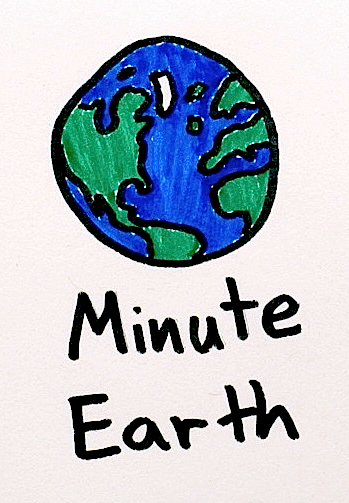 Minute
Earth